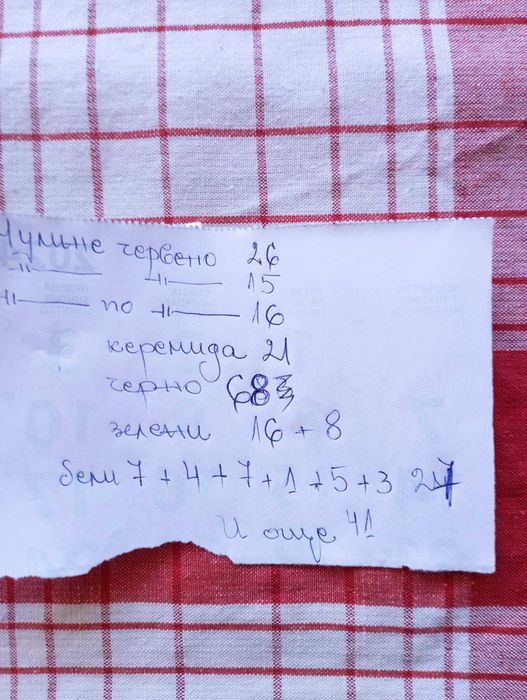 червено 26
–〃– –〃– 15
–〃– по –〃– 16
керемида 21
черно 68
зелени 16 + 8
бели 7 + 4 + 7 + 1 + 5 + 3 27
И още 41